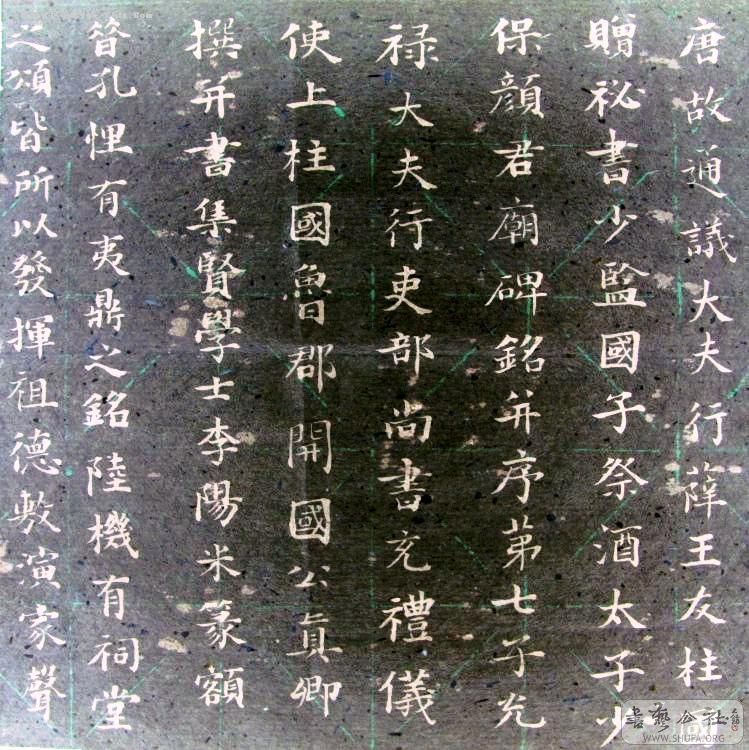 唐故通議大夫行薛王友柱
贈祕書少監國子祭酒太子少
保顏君廟碑銘并序第七子光
禄大夫行吏部尚書充禮儀
使上柱國魯郡開國公真卿
撰并書集賢學士李陽氷篆額
昔孔悝有夷鼎之銘陸機有祠堂
之頌皆所以發揮祖德敷演家聲
書藝公社
WWW.SHUFA.ORG